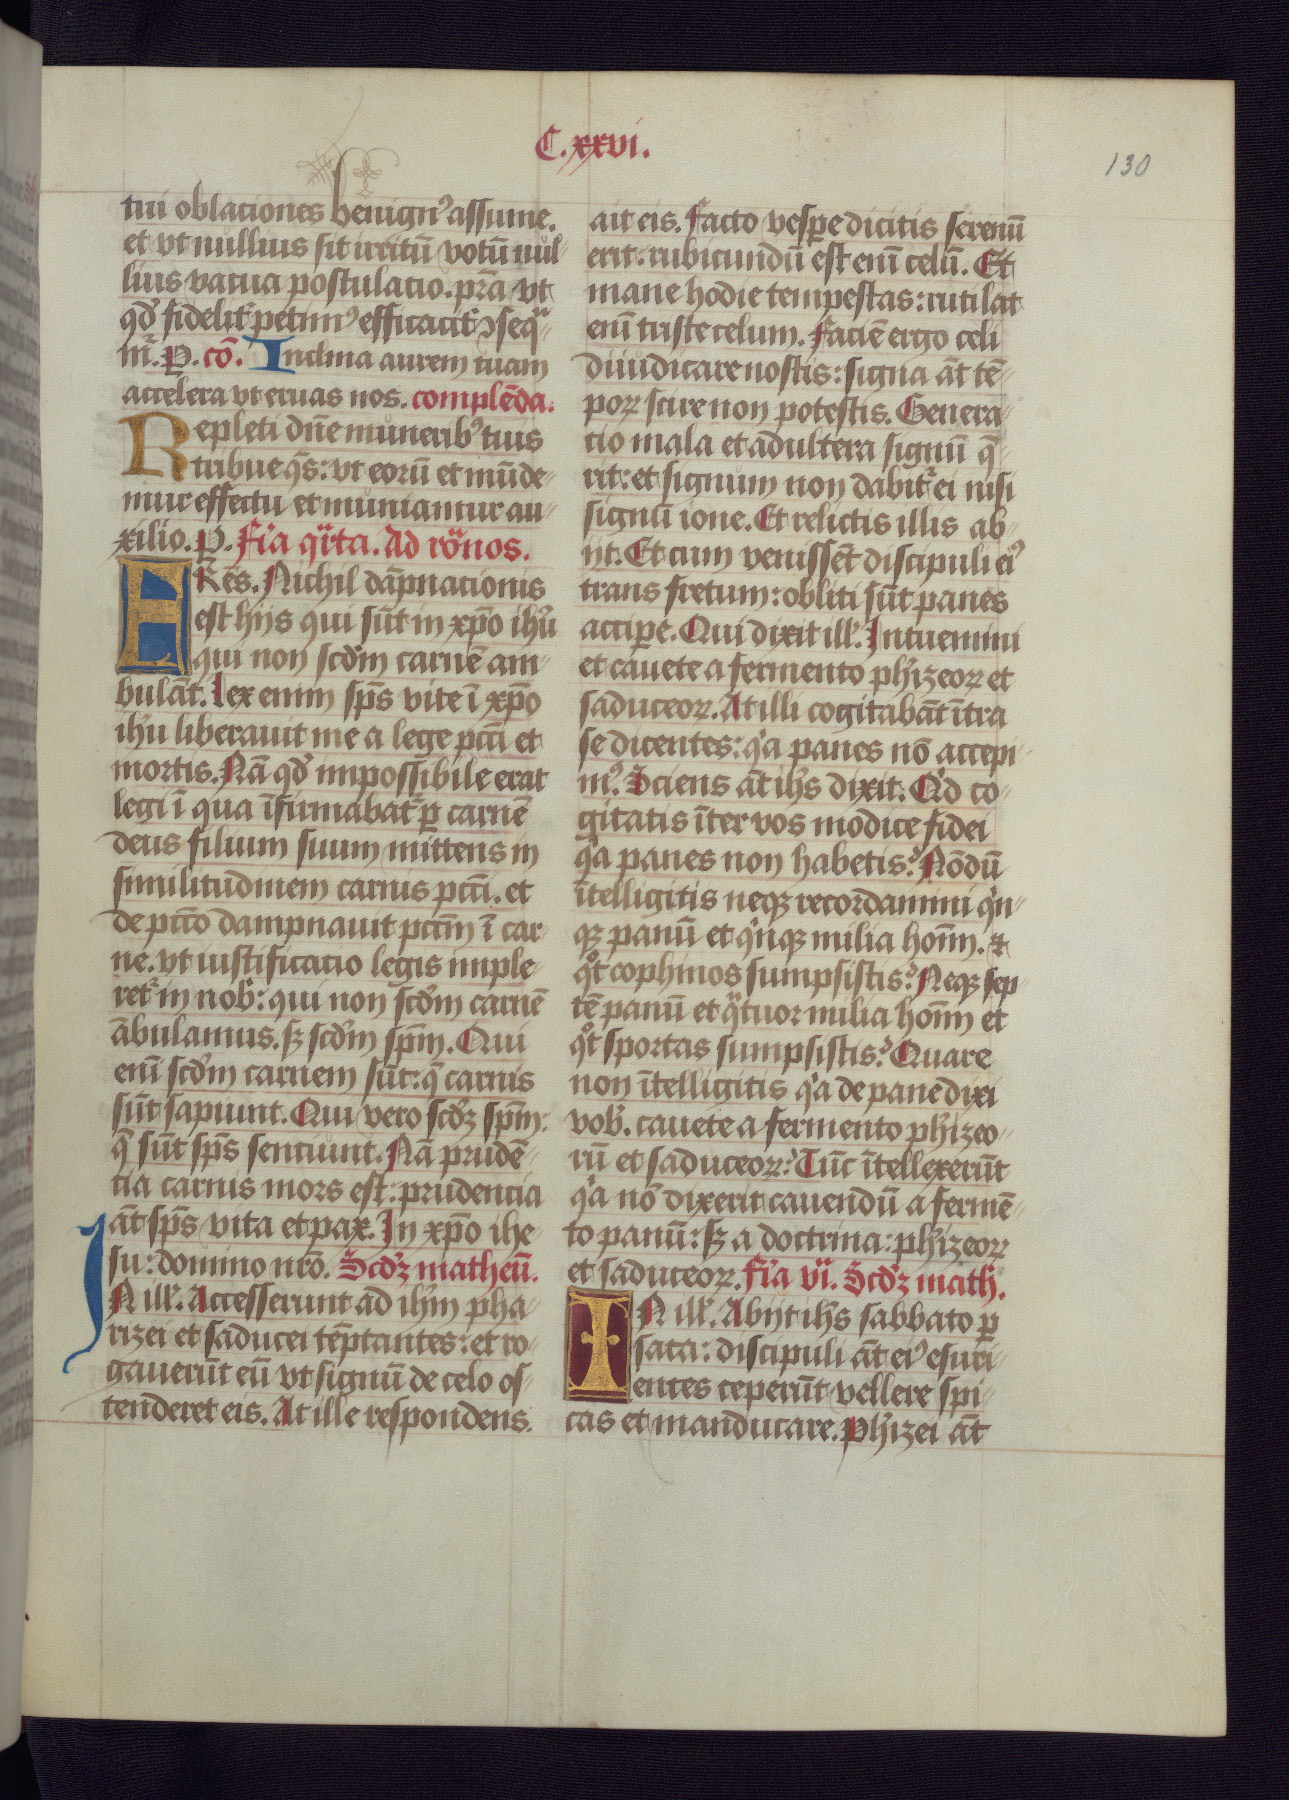 C. xxvi.
130
tui oblaciones benignꝰ assume.
et vt nullius sit irritū votū nul-
lius vacua postulatio. pr̄a vt
qd̛ fidelit̛ petimꝰ efficacit̛ ꝯseqͣ-
m̛. P. cō. Inclina aurem tuam
accelera vt eruas nos. complēda.
Repleti dn̄e munerib̛ tuis
tribue qs̄: vt eorū et mūde-
mur effectu et muniamur au-
xilio. P. Fīa qͥīta. Ad rōnos.
FRēs. Nichil dāpnacionis
est hijs qui sūt in xp̄o ih̄u
qui non scd̄m carnē am-
bulāt. lex enim sp̄s vite ī xp̄o
ih̄u liberauit me a lege pctī et
mortis. Nā qd̛ impossibile erat
legi ī qua īfirmabat̛ ꝑ carnē
deus filium suum mittens in
similitudinem carnis pctī. et
de pctō dampnauit pctm̄ ī car-
ne. vt iustificatio legis imple-
ret̛ in nob̛: qui non scd̄m carnē
ābulamus. sꝫ scd̄m sp̄m. Qui
enī scd̄m carnem sūt: q̄ carnis
sūt sapiunt. Qui vero scd̛ꝫ sp̄m:
q̄ sūt sp̄s sentiunt. Nā prudē-
cia carnis mors est: prudencia
āt sp̄s vita et pax. In xp̄o ihe-
su: domino nr̄o. Scd̛ꝫ matheū.
IN ill̛. Accesserunt ad ih̄m pha-
rizei et saducei tēptantes: et ro-
gauerūt eū vt signū de celo os-
tenderet eis. At ille respondens.
ait eis. Facto vesꝑe dicitis serenū
erit: rubicundū est enī celū. Et
mane hodie tempestas: rutilat
enī triste celum. Faciē ergo celi
diiudicare nostis: signa āt tē-
poꝝ scire non potestis. Genera-
tio mala et adultera signū q̄-
rit: et signum non dabit̛ ei nisi
signū ione. Et relictis illis ab-
ijt. Et cum venissēt discipuli eiꝰ
trans fretum: obliti sūt panes
acciꝑe. Qui dixit ill̛. Intuemini
et cauete a fermento ph̛izeoꝝ et
saduceoꝝ. At illi cogitabāt ītra
se dicentes: qͥa panes nō accepi-
mꝰ. Sciens āt ih̄s dixit. Qͥd co-
gitatis īter vos modice fidei
qͥa panes non habetis? Nōdū
ītelligitis neqꝫ recordamini qͥn-
qꝫ panū et qͥnqꝫ milia hoīm. ⁊
qͦt cophinos sumpsistis? Neqꝫ sep-
tē panū et qͣtuor milia hoīm et
qͦt sportas sumpsistis? Quare
non ītelligitis qͥa de pane dixi
vob̛. cauete a fermento ph̛izeo-
rū et saduceoꝝ? Tūc ītellexerūt
qͥa nō dixerit cauendū a fermē-
to panū: sꝫ a doctrina: ph̛izeoꝝ
et saduceoꝝ. Fīa vͥi. Scd̛ꝫ math̛.
IN ill̛. Abijt ih̄s sabbato ꝑ
sata: discipuli āt eiꝰ esuri-
entes ceperūt vellere spi-
cas et manducare. Ph̛izei āt